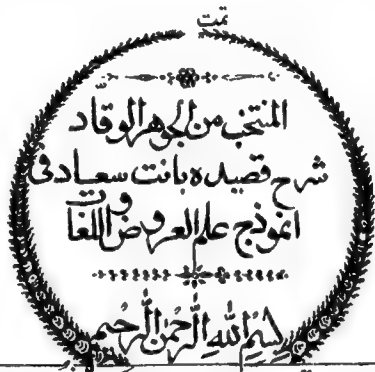 تمت
المنتخب من الجوهر الوقاد
شرح قصيده بانت سعاد فى
انموذج علم العروض واللغات
بِسْمِ اللهِ الرَّحْمٰنِ الرَّحِيْمِ